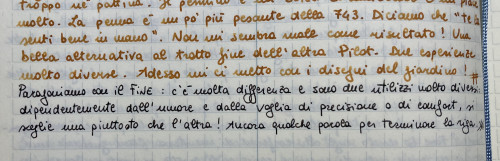 troppo né pattina.
molto. La penna è un po' più pesante della 743. Diciamo che "te la
senti bene in mano". Non mi sembra male come risultato! Una
bella alternativa al tratto fine dell'altra Pilot. Due esperienze
molto diverse. Adesso mi ci metto con i disegni del giardino!
Paragoniamo con il FINE: c'è molta differenza e sono due utilizzi molto diversi
dipendentemente dall'umore e dalla voglia di precisione o di comfort, si
sceglie una piuttosto che l'altra! Ancora qualche parola per terminare la riga